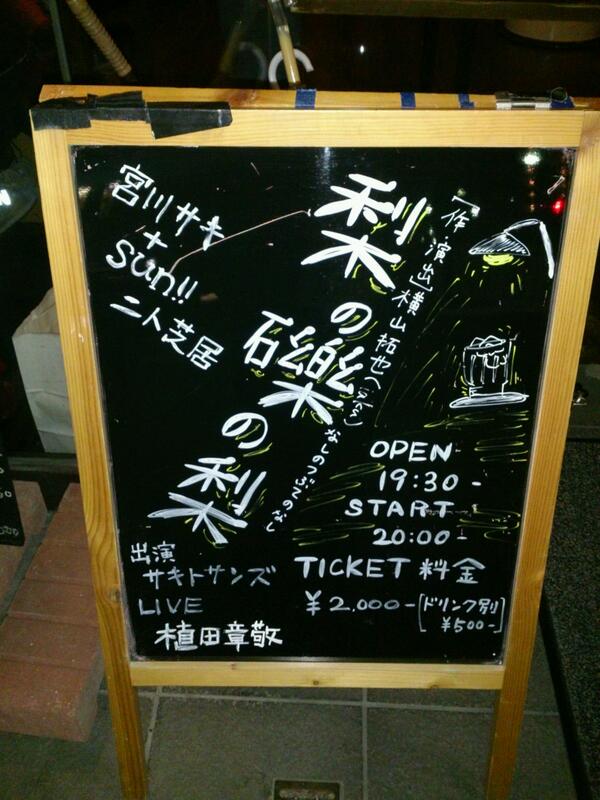 宮川サキ
+
sun!!
二人芝居
梨の礫の梨
なしのつぶてのなし
[作・演出]横山拓也
OPEN
19:30-
START
20:00-
出演
サキトサンズ
LIVE
植田章敬
TICKET 料金
¥2,000-
[ドリンク別
¥500-]